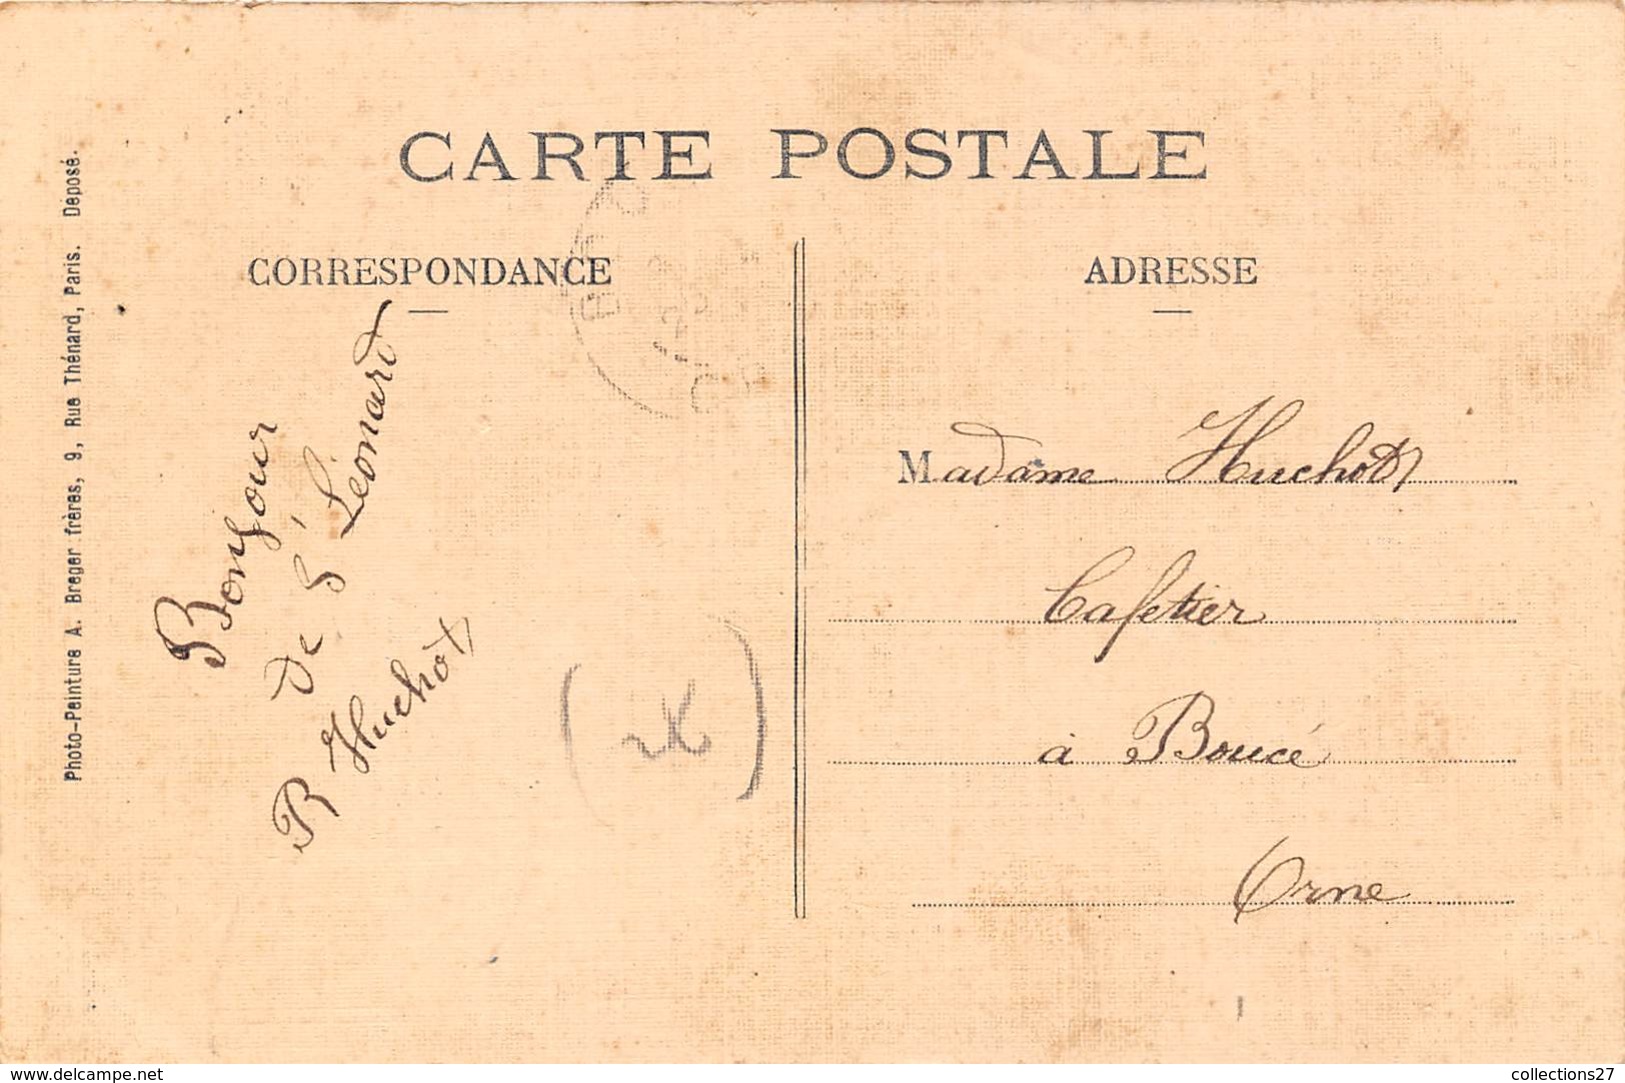 CARTE POSTALE
CORRESPONDANCE
ADRESSE
Photo-Peinture A. Breger frères, 9, Rue Thénard, Paris. Déposé.
Bonjour
de St Léonard
R Huchot
Madame Huchot
Cafetier
à Boucé
Orne
www.delcampe.net
collections27